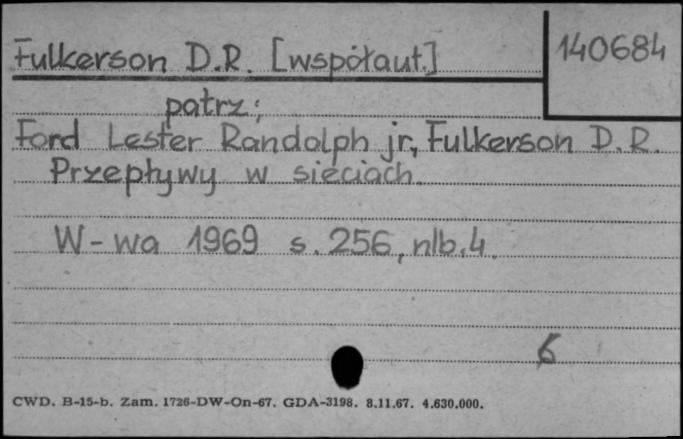 Fulkerson D.R. [współaut.]
140684
patrz:
Ford Lester Randolph jr, Fulkerson D.R.
Przepływy w sieciach.
W-wa 1969 s. 256, nlb. 4.
6
CWD. B-15-b. Zam. 1726-DW-On-67. GDA-3198. 8.11.67. 4.630.000.